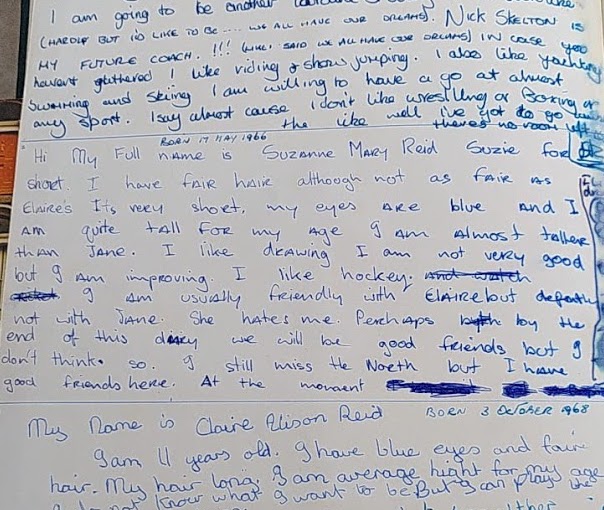 I am going to be another
(HARDLY BUT I'D LIKE TO BE .... WE ALL HAVE OUR DREAMS). NICK SKELTON IS
MY FUTURE COACH. !!! (LIKE I SAID WE ALL HAVE OUR DREAMS) IN CASE you
havent gathered I like riding & show jumping. I also like yachting
swimming and skiing I am willing to have a go at almost
any sport. I say almost cause I don't like wrestling or Boxing or
the like well I've got to go
theres no room left
BORN 17 MAY 1966
Hi My Full name is Suzanne Mary Reid Suzie for
short. I have fair hair although not as fair as
Elaire's Its very short, my eyes are blue and I
am quite tall for my age I am almost taller
than Jane. I like drawing I am not very good
but I am improving. I like hockey. and watch
I am usually friendly with Elaire but defently
not with Jane. She hates me. Perchaps by the
end of this diary we will be good friends but I
don't think so. I still miss the North but I have
good friends here. At the moment
My Name is Claire Alison Reid BORN 3 OCTOBER 1968
I am 11 years old. I have blue eyes and fair
hair. My hair long. I am average hight for my age
not know what I want to be But I can play the